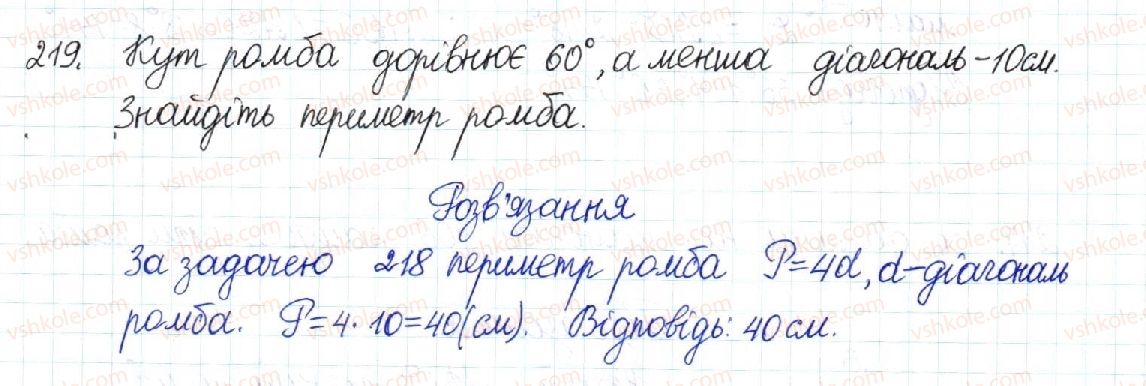 219. Кут ромба дорівнює 60°, а менша діагональ - 10 см.
Знайдіть периметр ромба.
Розв'язання
За задачею 218 периметр ромба P=4d, d-діагональ
ромба. P=4·10=40(см). Відповідь: 40 см.